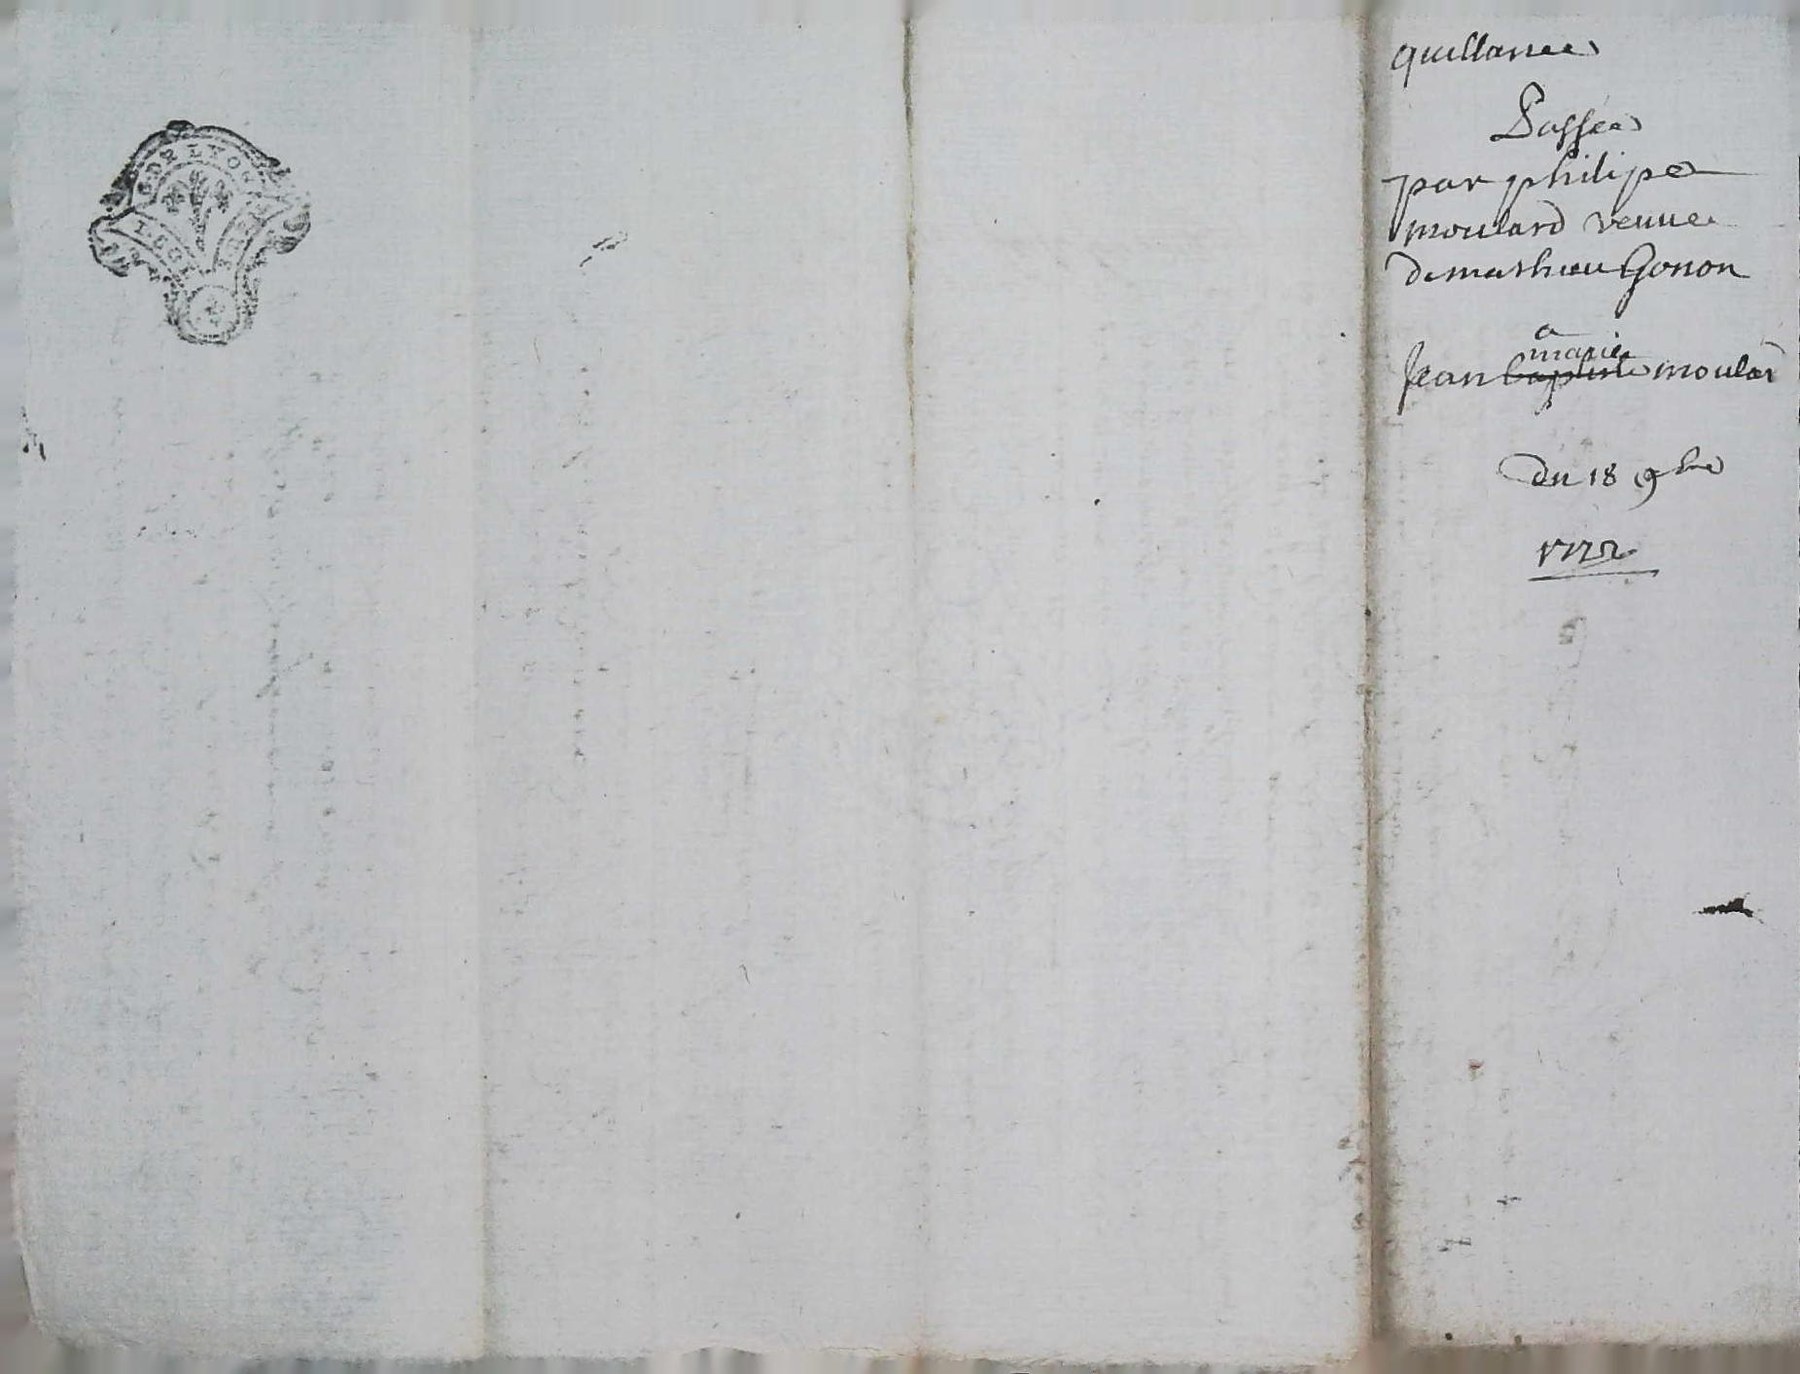 G. DE LYON
quittance
Passée
par philipe
moulard veuve
de mathieu Gonon
a
marie
Jean baptiste moulard
du 18 9bre
1772